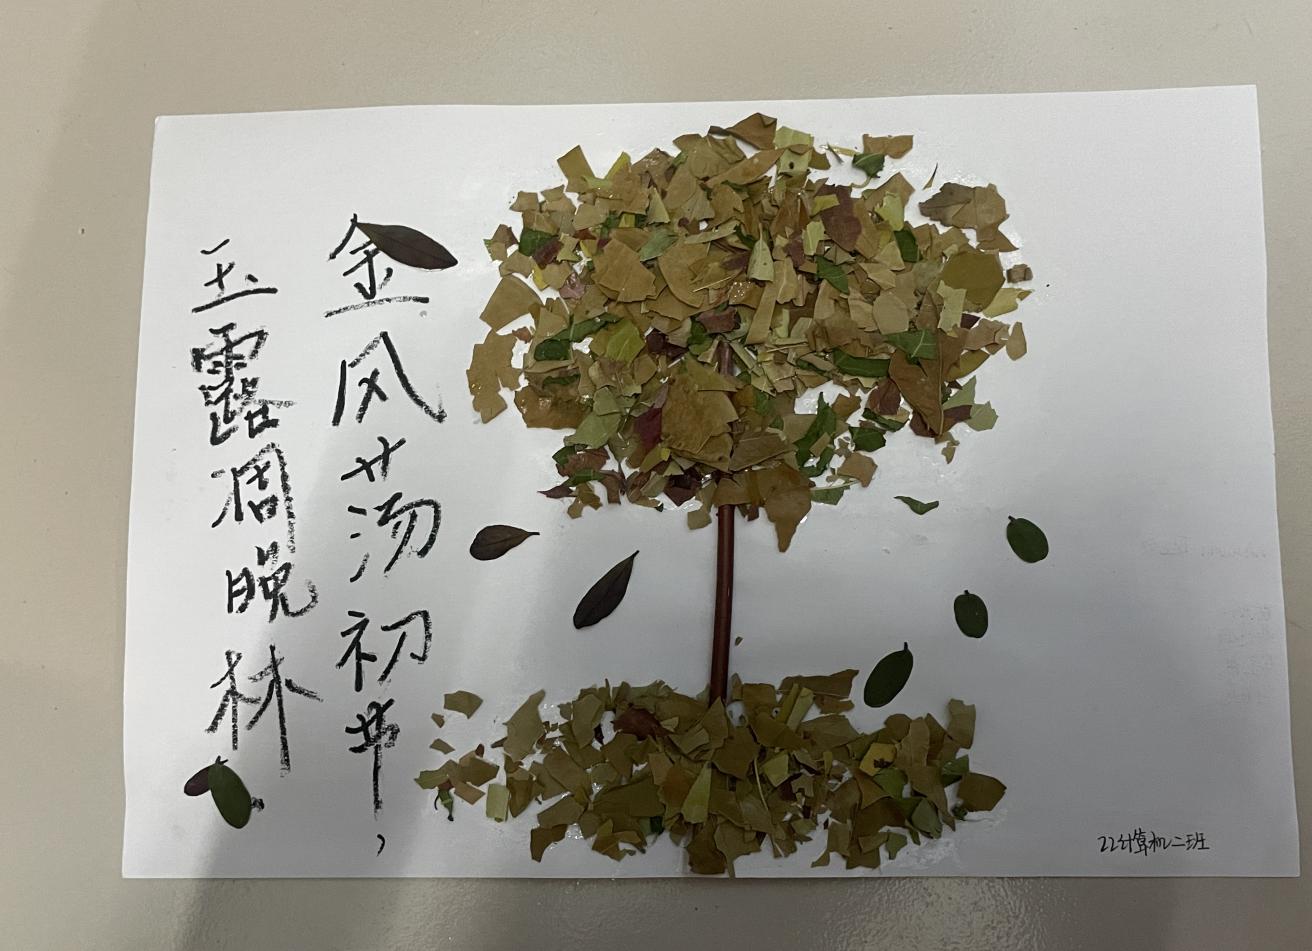 金风荡初节，
玉露凋晚林
22计算机二班